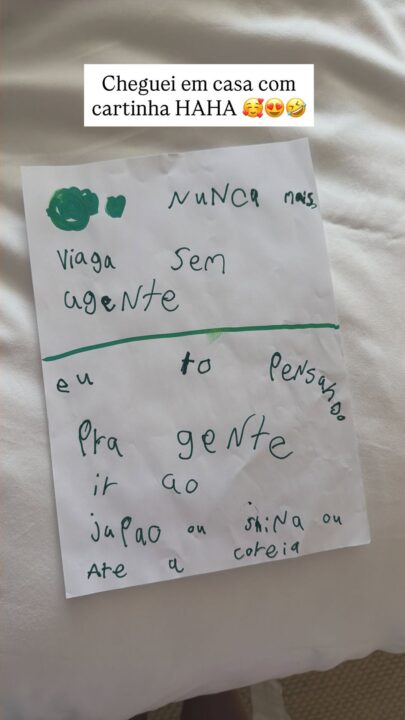 Cheguei em casa com
cartinha HAHA 🥰😍🤣
NUNCA mais
Viaga sem
agente
eu to Pensando
Pra gente
ir ao
japao ou shina ou
Ate a coreia